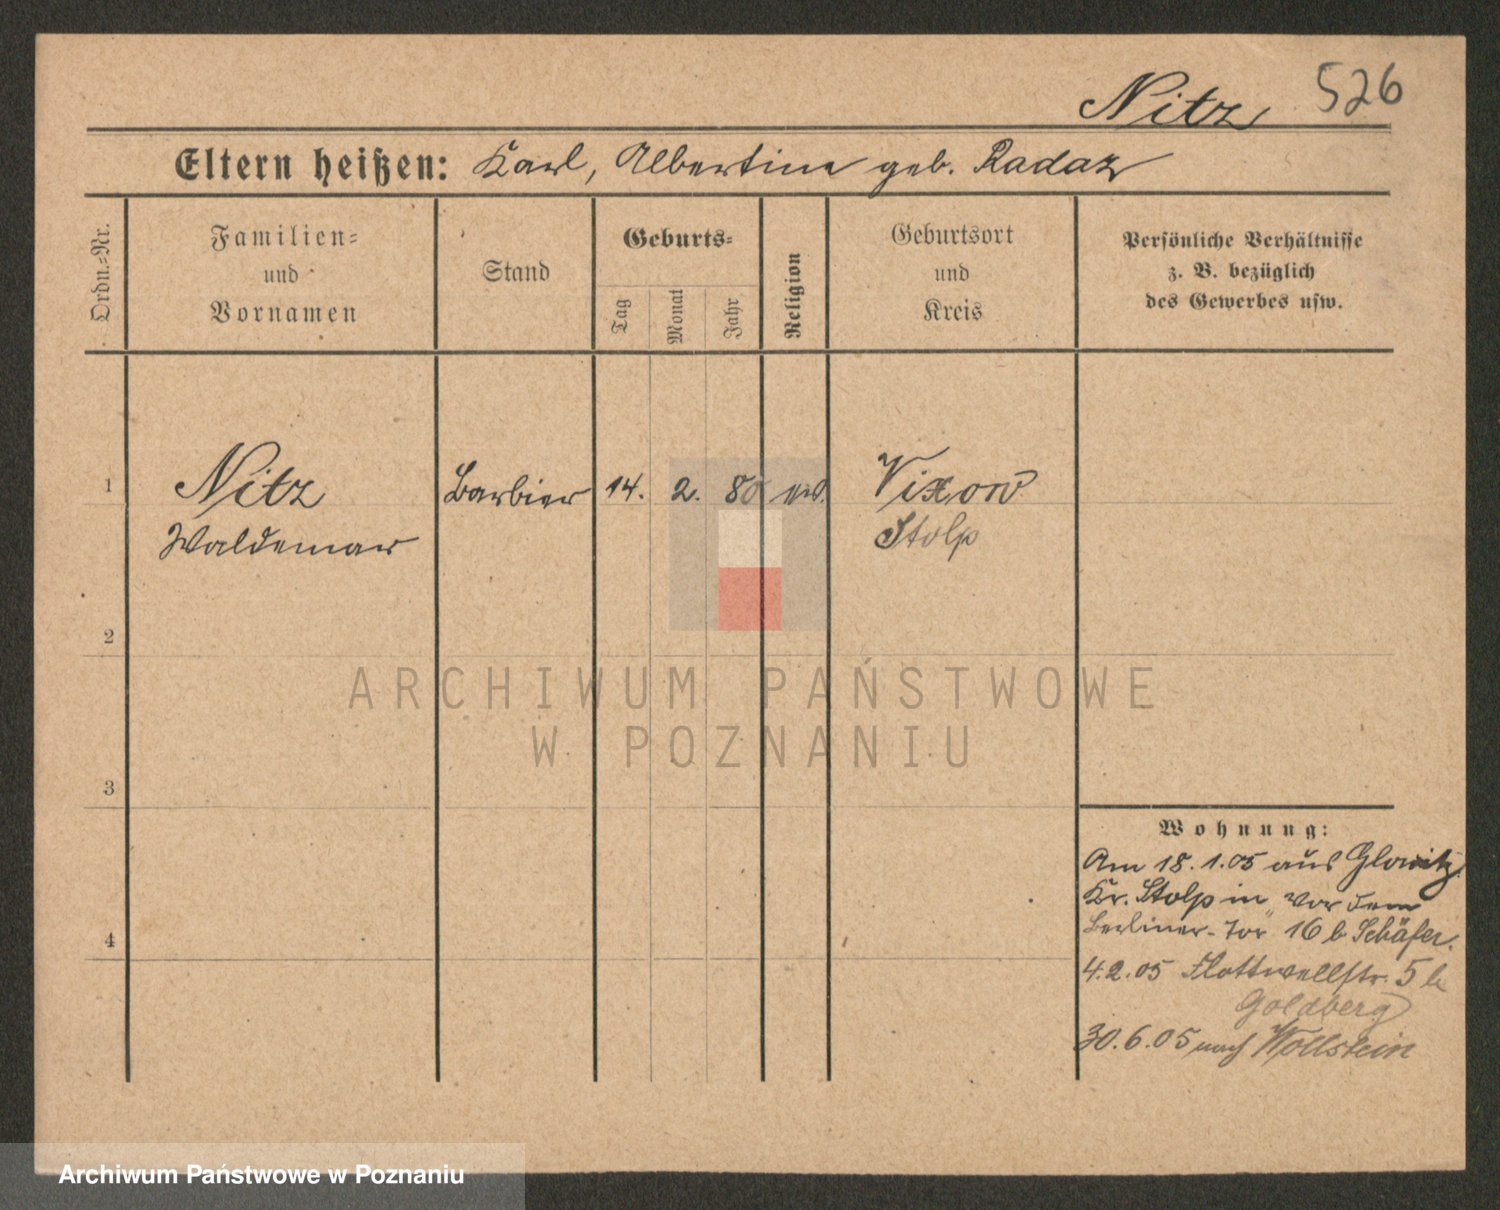 Nitz 526
Eltern heißen: Karl, Albertine geb. Radaz
Ordn.-Nr.
Familien-
und
Vornamen
Stand
Geburts-
Tag
Monat
Jahr
Religion
Geburtsort
und
Kreis
Persönliche Verhältnisse
z. B. bezüglich
des Gewerbes usw.
1 Nitz Barbier 14. 2. 80 ev. Vixow
Waldemar Stolp
2
ARCHIWUM PAŃSTWOWE
W POZNANIU
3
Wohnung:
Am 18.1.05 aus Glowitz
Kr. Stolp in Vor dem
4
Berliner-Tor 16 b Schäfer.
4.2.05 Flottwellstr. 5 b
Goldberg
30.6.05 nach Wollstein
Archiwum Państwowe w Poznaniu